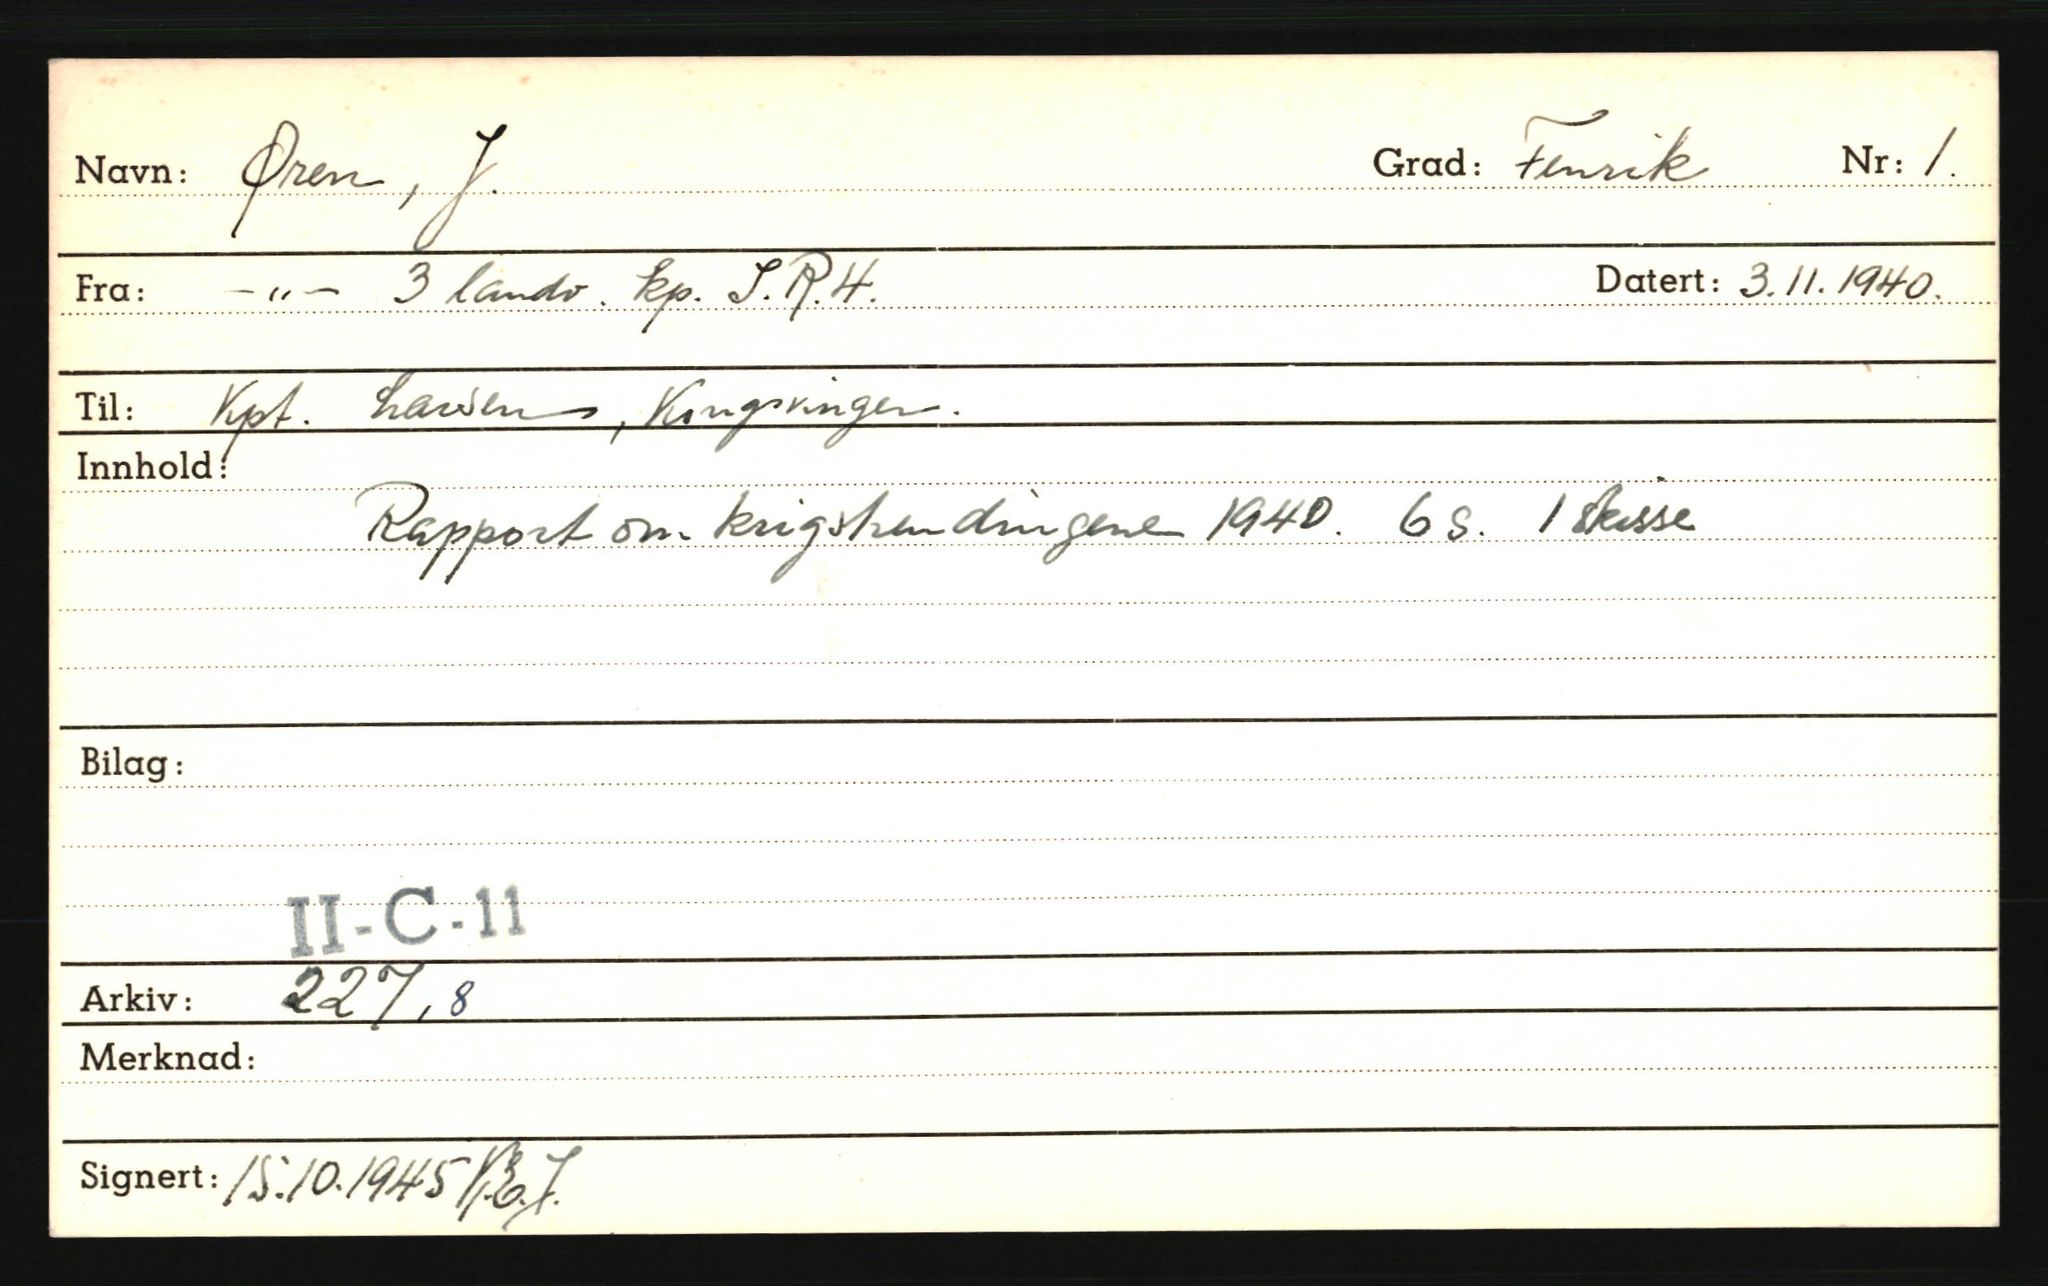 Navn: Øren, J. Grad: Fenrik Nr: 1.
Fra: -"- 3 landv. kp. I.R.4. Datert: 3.11.1940.
Til: Kpt. Larsen, Kongsvinger.
Innhold:
Rapport om krigshendingene 1940. 6 s. 1 skisse
Bilag:
II-C-11
Arkiv: 227,8
Merknad:
Signert: 15.10.1945